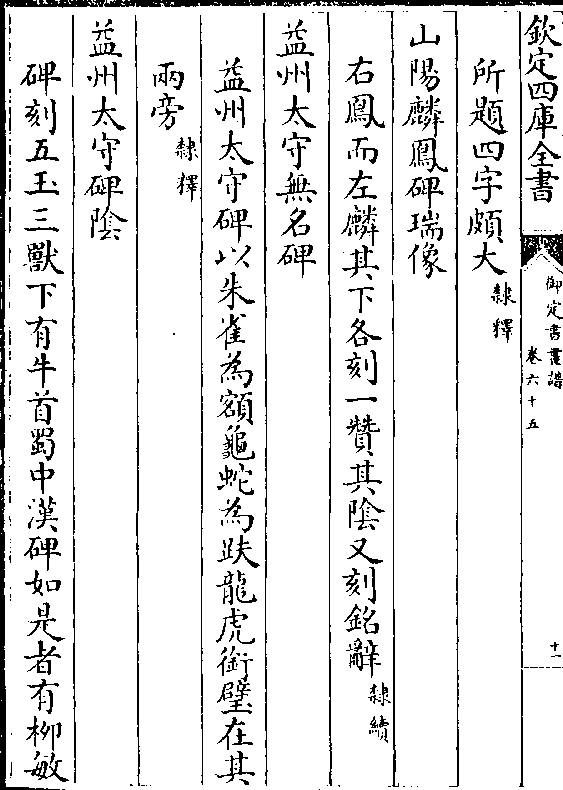 欽定四庫全書
御定書畫譜
卷六十五
十一
所題四字頗大隸釋
山陽麟鳳碑瑞像
右鳳而左麟其下各刻一贊其陰又刻銘辭隸續
益州太守無名碑
益州太守碑以朱雀為額龜蛇為趺龍虎銜璧在其
兩旁隸釋
益州太守碑陰
碑刻五玉三獸下有牛首蜀中漢碑如是者有柳敏